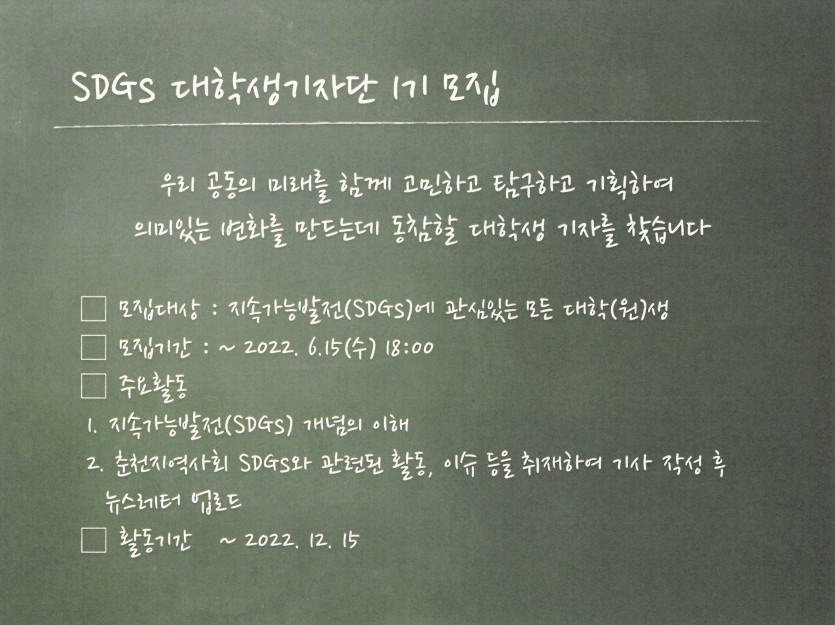 SDGs 대학생기자단 1기 모집
우리 공동의 미래를 함께 고민하고 탐구하고 기획하여
의미있는 변화를 만드는데 동참할 대학생 기자를 찾습니다
□ 모집대상 : 지속가능발전(SDGs)에 관심있는 모든 대학(원)생
□ 모집기간 : ~ 2022. 6.15(수) 18:00
□ 주요활동
1. 지속가능발전(SDGs) 개념의 이해
2. 춘천지역사회 SDGs와 관련된 활동, 이슈 등을 취재하여 기사 작성 후
뉴스레터 업로드
□ 활동기간 ~ 2022. 12. 15